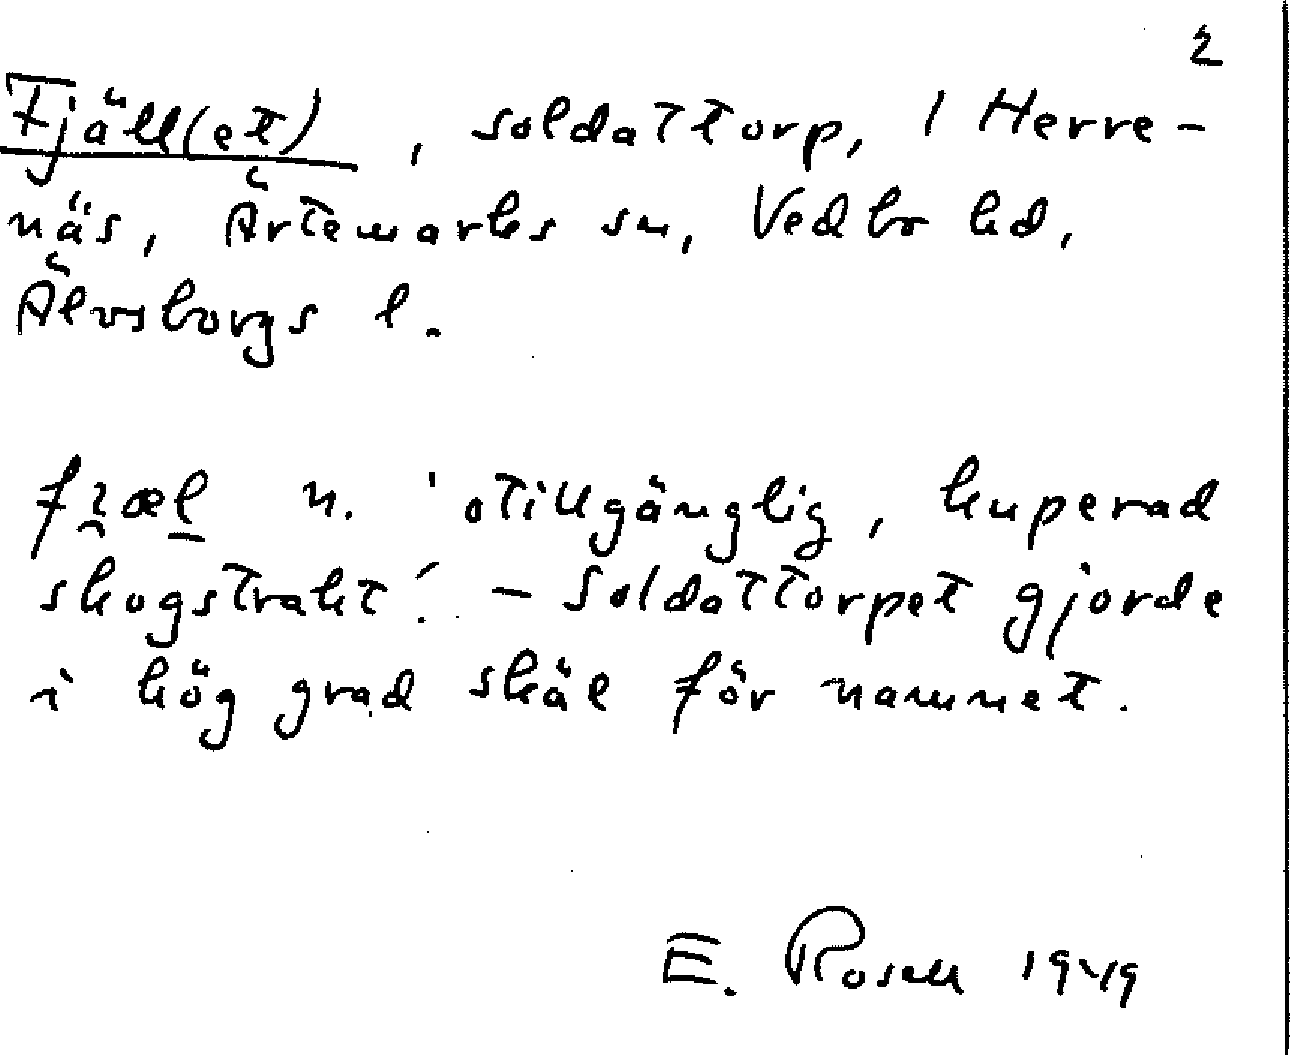 2
Fjäll(et), soldattorp, i Herre-
näs, Ärtemarks sn, Vedbo hd,
Älvsborgs l.
n. 'otillgänglig, kuperad
skogstrakt'. - Soldattorpet gjorde
i hög grad skäl för namnet.
E. Rosell 1949